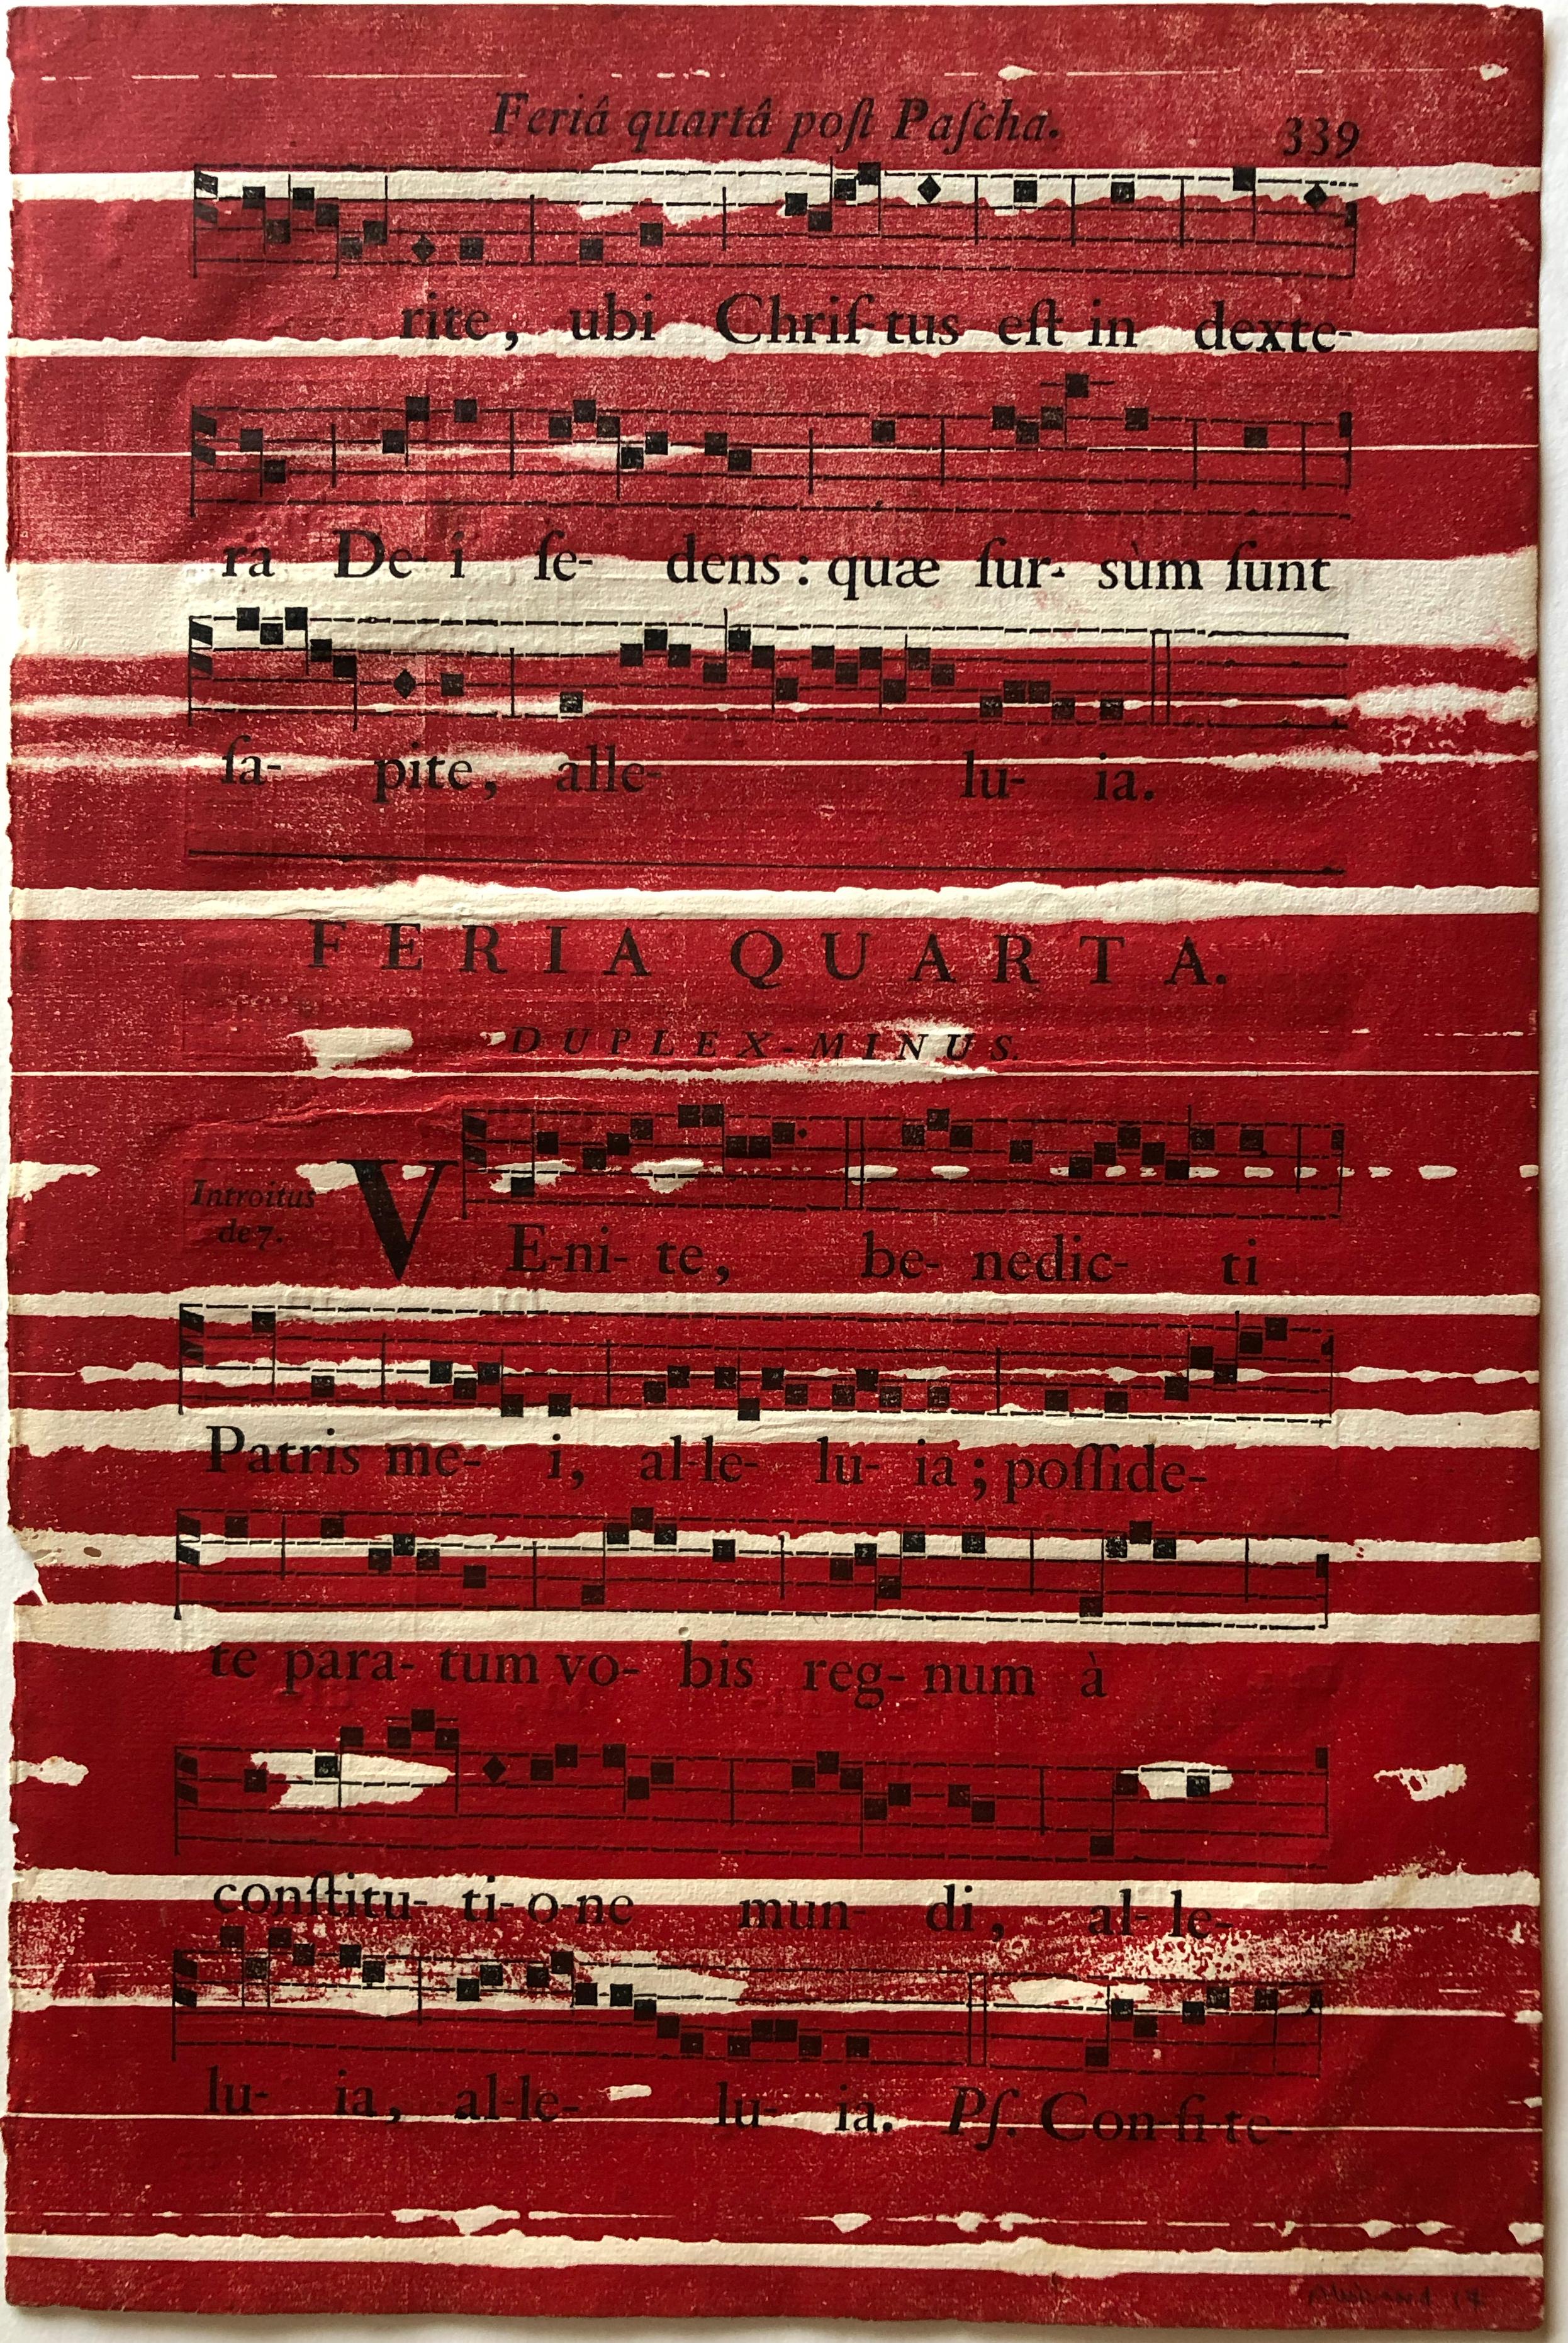 Feriâ quartâ poſt Paſcha. 339
rite, ubi Chriſ-tus eſt in dexte-
ra De-i ſe-dens : quæ ſur-sùm ſunt
ſa-pite, alle-lu-ia.
FERIA QUARTA.
DUPLEX-MINUS.
Introitus
de 7.
VE-ni-te, be-nedic-ti
Patris me-i, al-le-lu-ia ; poſſide-
te para-tum vo-bis reg-num à
conſtitu-ti-o-ne mun-di, al-le-
lu-ia, al-le-lu-ia. Pſ. Con-fi-te-